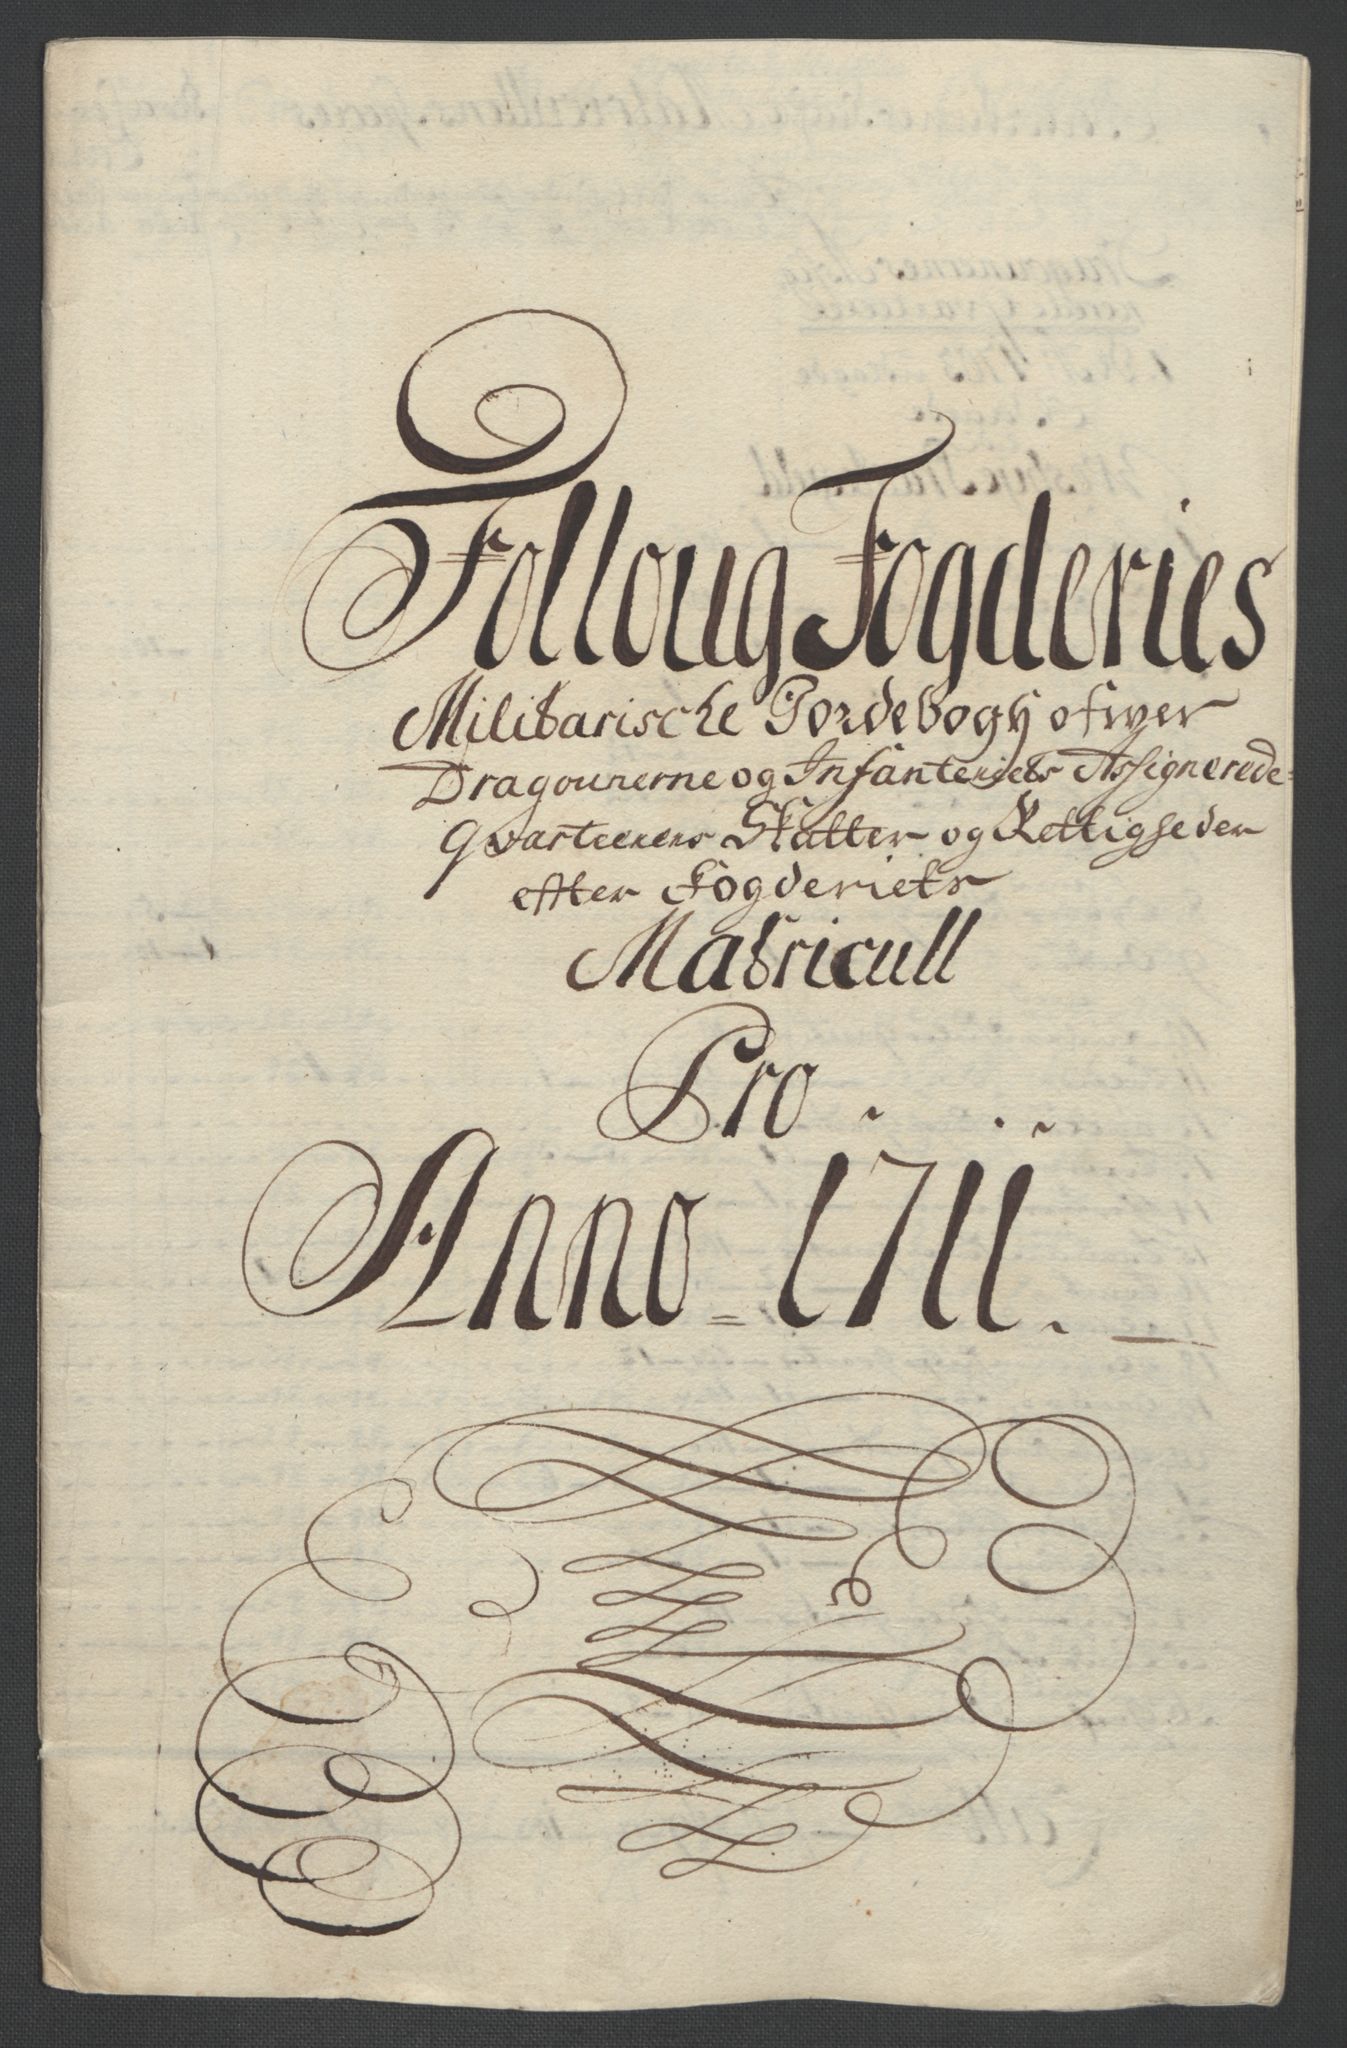 Folloug Fogderies
Militarische Jordebogh ofwer
Dragounerne og Infanteriets Assignerede
Qvarteerers Skatter og Rettigheder
efter Fogderiets
Matricull
Pro
Anno 1711.